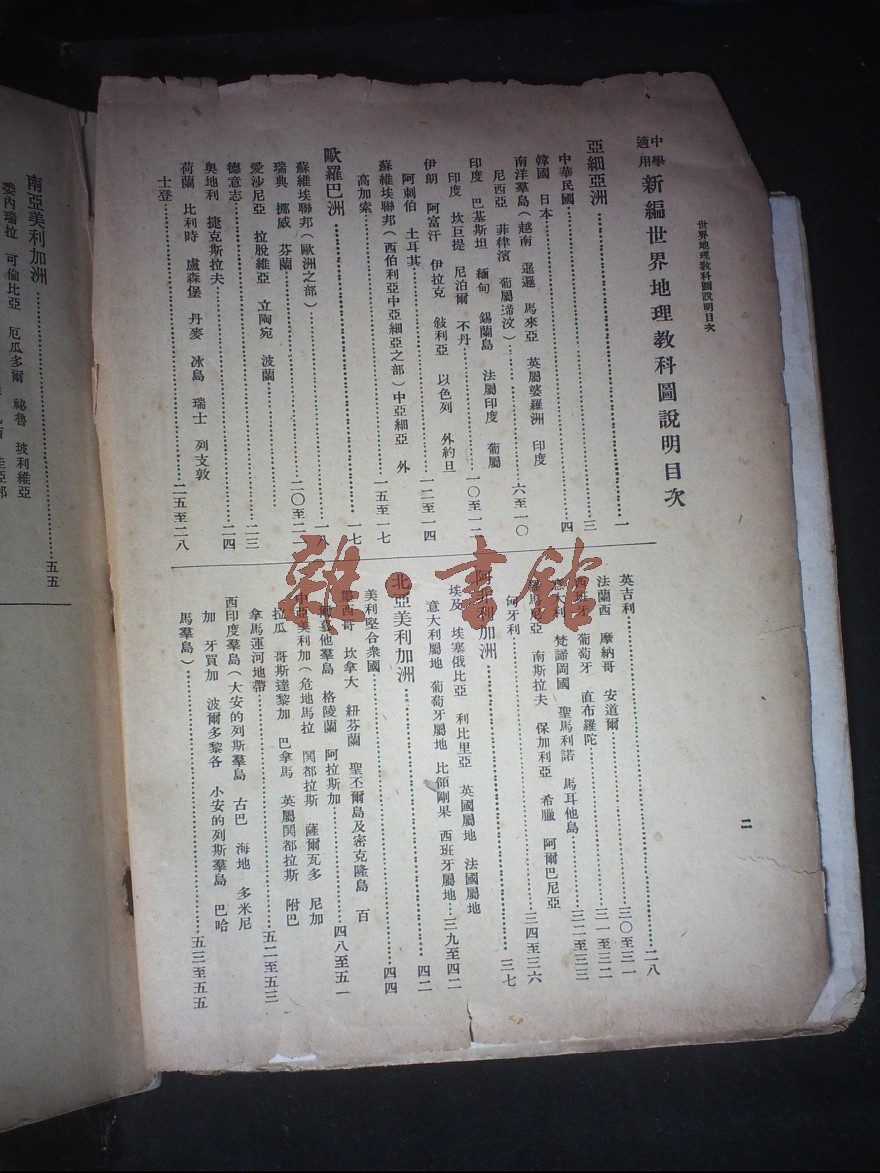 世界地理教科圖說明目次
中學適用 新編世界地理教科圖說明目次
亞細亞洲……一
中華民國……三
韓國 日本……四
南洋羣島(越南 暹邏 馬來亞 英屬婆羅洲 印度
尼西亞 菲律濱 葡屬渧汶)……六至一〇
印度 巴基斯坦 緬甸 錫蘭島 法屬印度 葡屬
印度 坎巨提 尼泊爾 不丹……一〇至一二
伊朗 阿富汗 伊拉克 敍利亞 以色列 外約旦
阿刺伯 土耳其……一二至一四
蘇維埃聯邦(西伯利亞中亞細亞之部)中亞細亞 外
高加索……一五至一七
歐羅巴洲……一七
蘇維埃聯邦(歐洲之部)……一八
瑞典 挪威 芬蘭……二〇至二一
愛沙尼亞 拉脫維亞 立陶宛 波蘭……
德意志……二三
奥地利 捷克斯拉夫……二四
荷蘭 比利時 盧森堡 丹麥 冰島 瑞士 列支敦
士登……二五至二八
英吉利……二八
法蘭西 摩納哥 安道爾……三〇至三一
西班牙 葡萄牙 直布羅陀……三一至三二
意大利 梵諦岡國 聖馬利諾 馬耳他島……三二至三三
羅馬尼亞 南斯拉夫 保加利亞 希臘 阿爾巴尼亞
匈牙利……三四至三六
阿非利加洲……三七
埃及 埃塞俄比亞 利比里亞 英國屬地 法國屬地
意大利屬地 葡萄牙屬地 比領剛果 西班牙屬地…三九至四二
北亞美利加洲……四二
美利堅合衆國……四四
墨西哥 坎拿大 紐芬蘭 聖丕爾島及密克隆島 百
爾慕他羣島 格陵蘭 阿拉斯加……四八至五一
中亞美利加(危地馬拉 閧都拉斯 薩爾瓦多 尼加
拉瓜 哥斯達黎加 巴拿馬 英屬閧都拉斯 附巴
拿馬運河地帶……五二至五三
西印度羣島(大安的列斯羣島 古巴 海地 多米尼
加 牙買加 波爾多黎各 小安的列斯羣島 巴哈
馬羣島)……五三至五五
二
南亞美利加洲……五五
委內瑞拉 可倫比亞 厄瓜多爾 祕魯 玻利維亞
雜·書館